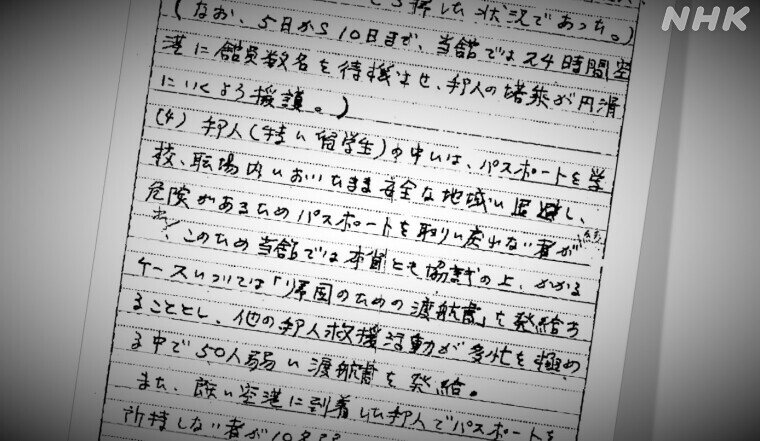 NHK
とう揮した状況であった。)
(なお、5日から10日まで、当館では24時間空
港に館員数名を待機させ、邦人の搭乗が円滑
にいくよう援護。)
(4) 邦人(特に留学生)の中には、パスポートを学
校、職場内においたまま安全な地域に退避し、
危険があるためパスポートを取りに戻れない者が
出、このため当館では本省とも協議の上、かかる
ケースについては「帰国のための渡航書」を発給す
ることとし、他の邦人救援活動が多忙を極め
る中で50人弱に渡航書を発給。
また、既に空港に到着した邦人でパスポートを
所持しない者が10名